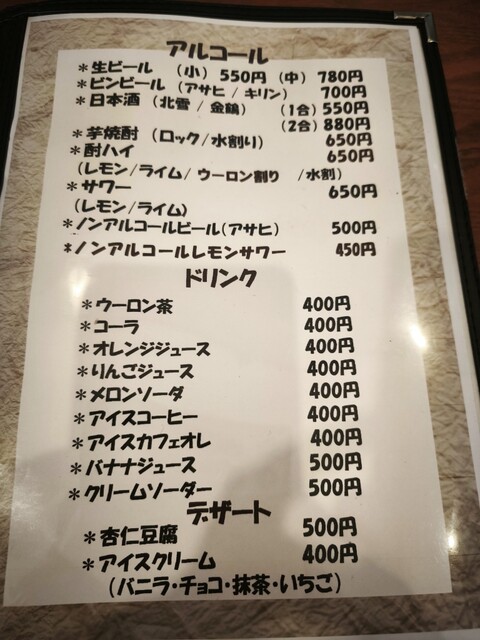 アルコール
*生ビール (小) 550円 (中) 780円
*ビンビール (アサヒ / キリン) 700円
*日本酒 (北雪 / 金鶴) (1合) 550円
(2合) 880円
*芋焼酎 (ロック/水割り) 650円
*酎ハイ 650円
(レモン/ライム/ ウーロン割り /水割)
*サワー 650円
(レモン/ライム)
*ノンアルコールビール(アサヒ) 500円
*ノンアルコールレモンサワー 450円
ドリンク
*ウーロン茶 400円
*コーラ 400円
*オレンジジュース 400円
*りんごジュース 400円
*メロンソーダ 400円
*アイスコーヒー 400円
*アイスカフェオレ 400円
*バナナジュース 500円
*クリームソーダー 500円
デザート
*杏仁豆腐 500円
*アイスクリーム 400円
(バニラ・チョコ・抹茶・いちご)